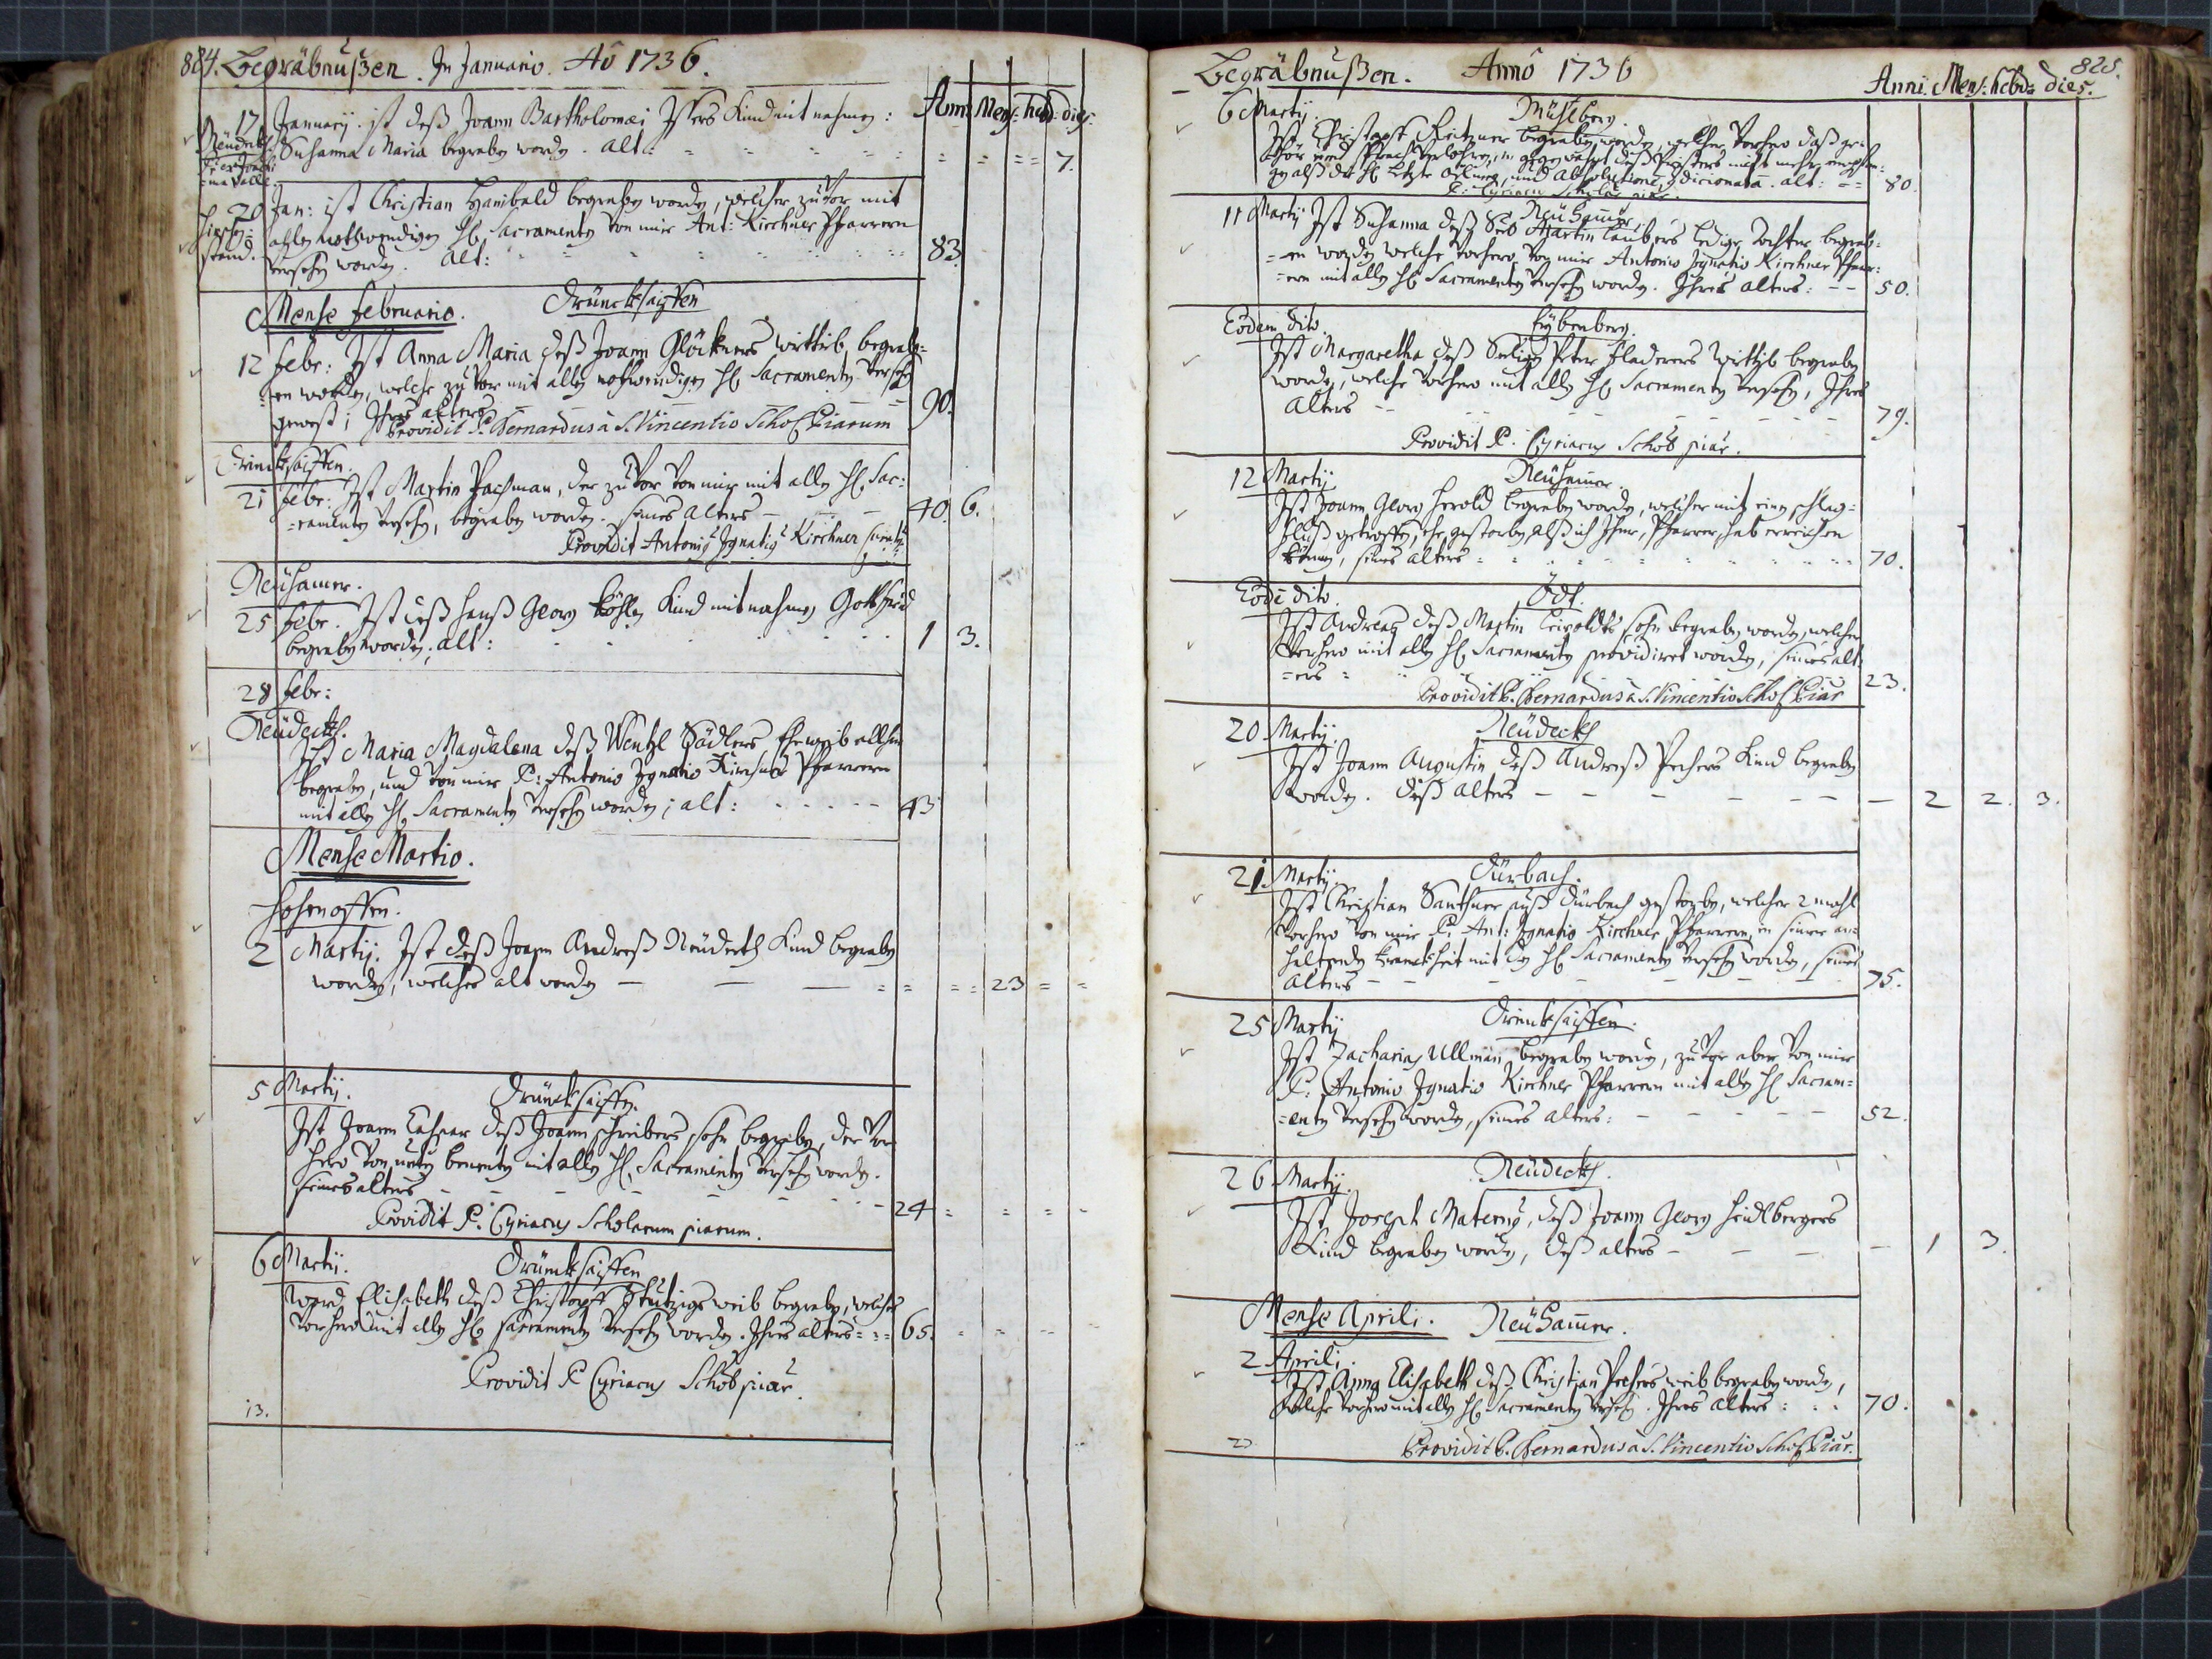 884. Begräbnußen. In Januario. Aō 1736.
Anni Mens: hebd: dies.
17 Januarij ist deß Joann Bartholomæi Kind mit nahmen:
Neüdeckh
Susanna Maria begraben worden. alt: 7.
20 Jan: ist Christian Hanibald begraben worden, welcher zuvor mit
allen nothwendigen hl Sacramenten von mir Ant: Kirchner Pfarrern
versehen worden. alt: 83.
Mense februario. Drünckhseiffen
12 febr: Ist Anna Maria deß Joann Glöckners wittib begrab=
=en worden, welche zu vor mit allen nothwendigen hl Sacramenten versehen
gewest; Ihres alters 90.
Providit P. Bernardus à S. Vincentio Schol Piarum
Trinckhseiffen.
21 febr: Ist Martin Pachman, der zu vor von mir mit allen hl. Sac:
=ramenten versehen, begraben worden. seines alters 40. 6.
Providit Antoniq Ignatiq Kirchner
Neühamer.
25 febr. Ist deß Hanß Georg Köhlen Kind mit nahmen Gottfried
begraben worden; alt: 1 3.
28 febr:
Neüdeckh.
Ist Maria Magdalena deß Wentzl Sädlers Eheweib allhie
begraben, und von mir P: Antonio Ignatio Kirchner Pfarrern
mit allen hl Sacramenten versehen worden; alt: 43
Mense Martio.
Hohenoffen.
2 Martij. Ist deß Joann Andreß Neüderth Kind begraben
worden, welches alt worden 23
5 Martij. Drünckhseiffen.
Ist Joann Caspar deß Joann schreibers sohn begraben, der vor
hero von unten benenten mit allen hl. Sacramenten versehen worden.
seines alters 24
Providit P. Cyriacus Scholarum piarum.
6 Martij. Drünckhseiffen
Ward Elisabeth deß Christoph weib begraben, welche
vorhero mit allen hl sacramenten versehen worden. Ihres alters 65.
Providit P Cyriacus Schol piar.
13.
Begräbnußen. Annô 1736 825.
Anni. Mens: hebd: dies.
6 Martij. Mühlberg.
Ist Christoph begraben worden, welcher vorhero daß ge=
hör und sprach verlohren, in gegenwahrt deß Priesters nicht mehr empfan=
gen alß die hl letzte ölung, und absolutionē cōdicionatā. alt: 80.
P: Cyriacus Scholar piar.
11 Martij Neühamer.
Ist Susanna deß Seel Martin Taubers ledige Tochter begrab=
=en worden welche vorhero von mir Antonio Ignatio Kirchner Pfarr=
=ern mit allen hl Sacramenten versehen worden. Ihres alters: 50.
Eodem dito. Eybenberg.
Ist Margaretha deß Seeligen Peter Fladerers Wittib begraben
worden, welche vorhero mit allen hl Sacramenten versehen, Ihres
Alters 79.
Providit P. Cyriacus Schol piar.
12 Martij Neühamer.
Ist Joann Georg Herold begraben worden, welcher mit einen schlag=
fluß getroffen, ehe gestorben, alß ich Ihme, Pfarrer, hab erreichen
können, seines alters 70.
Eodē dito. Ödt.
Ist Andreas deß Martin Leipoldts sohn begraben worden, welcher
vorhero mit allen hl Sacramenten providiret worden, seines alt=
=ers 23.
Providit P. Bernardus à S. Vincentio Schol Piar
20 Martij. Neüdeckh
Ist Joann Augustin deß Andreß Pechers Kind begraben
worden. deß alters 2 2. 3.
21. Martij. Dürbach.
Ist Christian Santhner auß Dürbach gestorben, welcher 2 mahl
vorhero von mir P. Ant: Ignatio Kirchner Pfarrern, in seiner an=
haltenden kranckheit mit den hl Sacramenten versehen worden, seines
Alters 75.
25 Martij Drinckhseiffen.
Ist Zacharias Ullman begraben worden, zu vor aber von mir
P: Antonio Ignatio Kirchner Pfarrern mit allen hl Sacram=
=enten versehen worden, seines alters: 52.
26 Martij. Neüdeckh.
Ist Joseph Maternq, deß Joann Georg Heidlbergers
Kind begraben worden, deß alters 1 3.
Mense Aprili. Neühamer.
2 Aprili.
Ist Anna Elisabeth deß Christian Pechers weib begraben worden,
welche vorhero mit allen hl Sacramenten versehen. Ihres alters: 70.
Providit P. Bernardus à S. Vincentio Schol Piar.